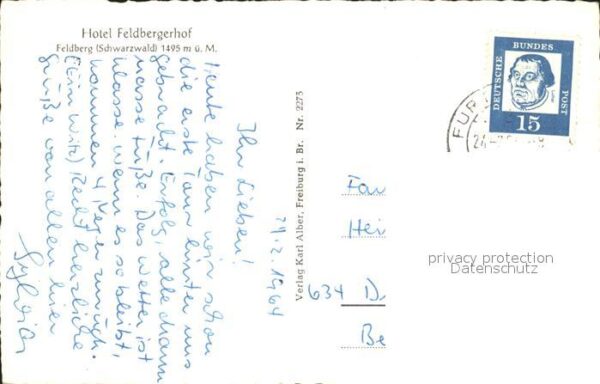 Hotel Feldbergerhof
Feldberg (Schwarzwald) 1495 m ü. M.
29.2.1964
Ihr Lieben!
Heute haben wir schon
die erste Tour hinter uns
gebracht. Erfolg, alle haben
nasse Füße. Das Wetter ist
klasse, wenn es so bleibt,
kommen 4 Neger zurück.
(Ein Witz) Recht herzliche
Grüße von allen hier
Verlag Karl Alber, Freiburg i. Br. Nr. 2275
DEUTSCHE BUNDES POST
Luther
15
Fam
Hei
634 D.
Be
privacy protection
Datenschutz